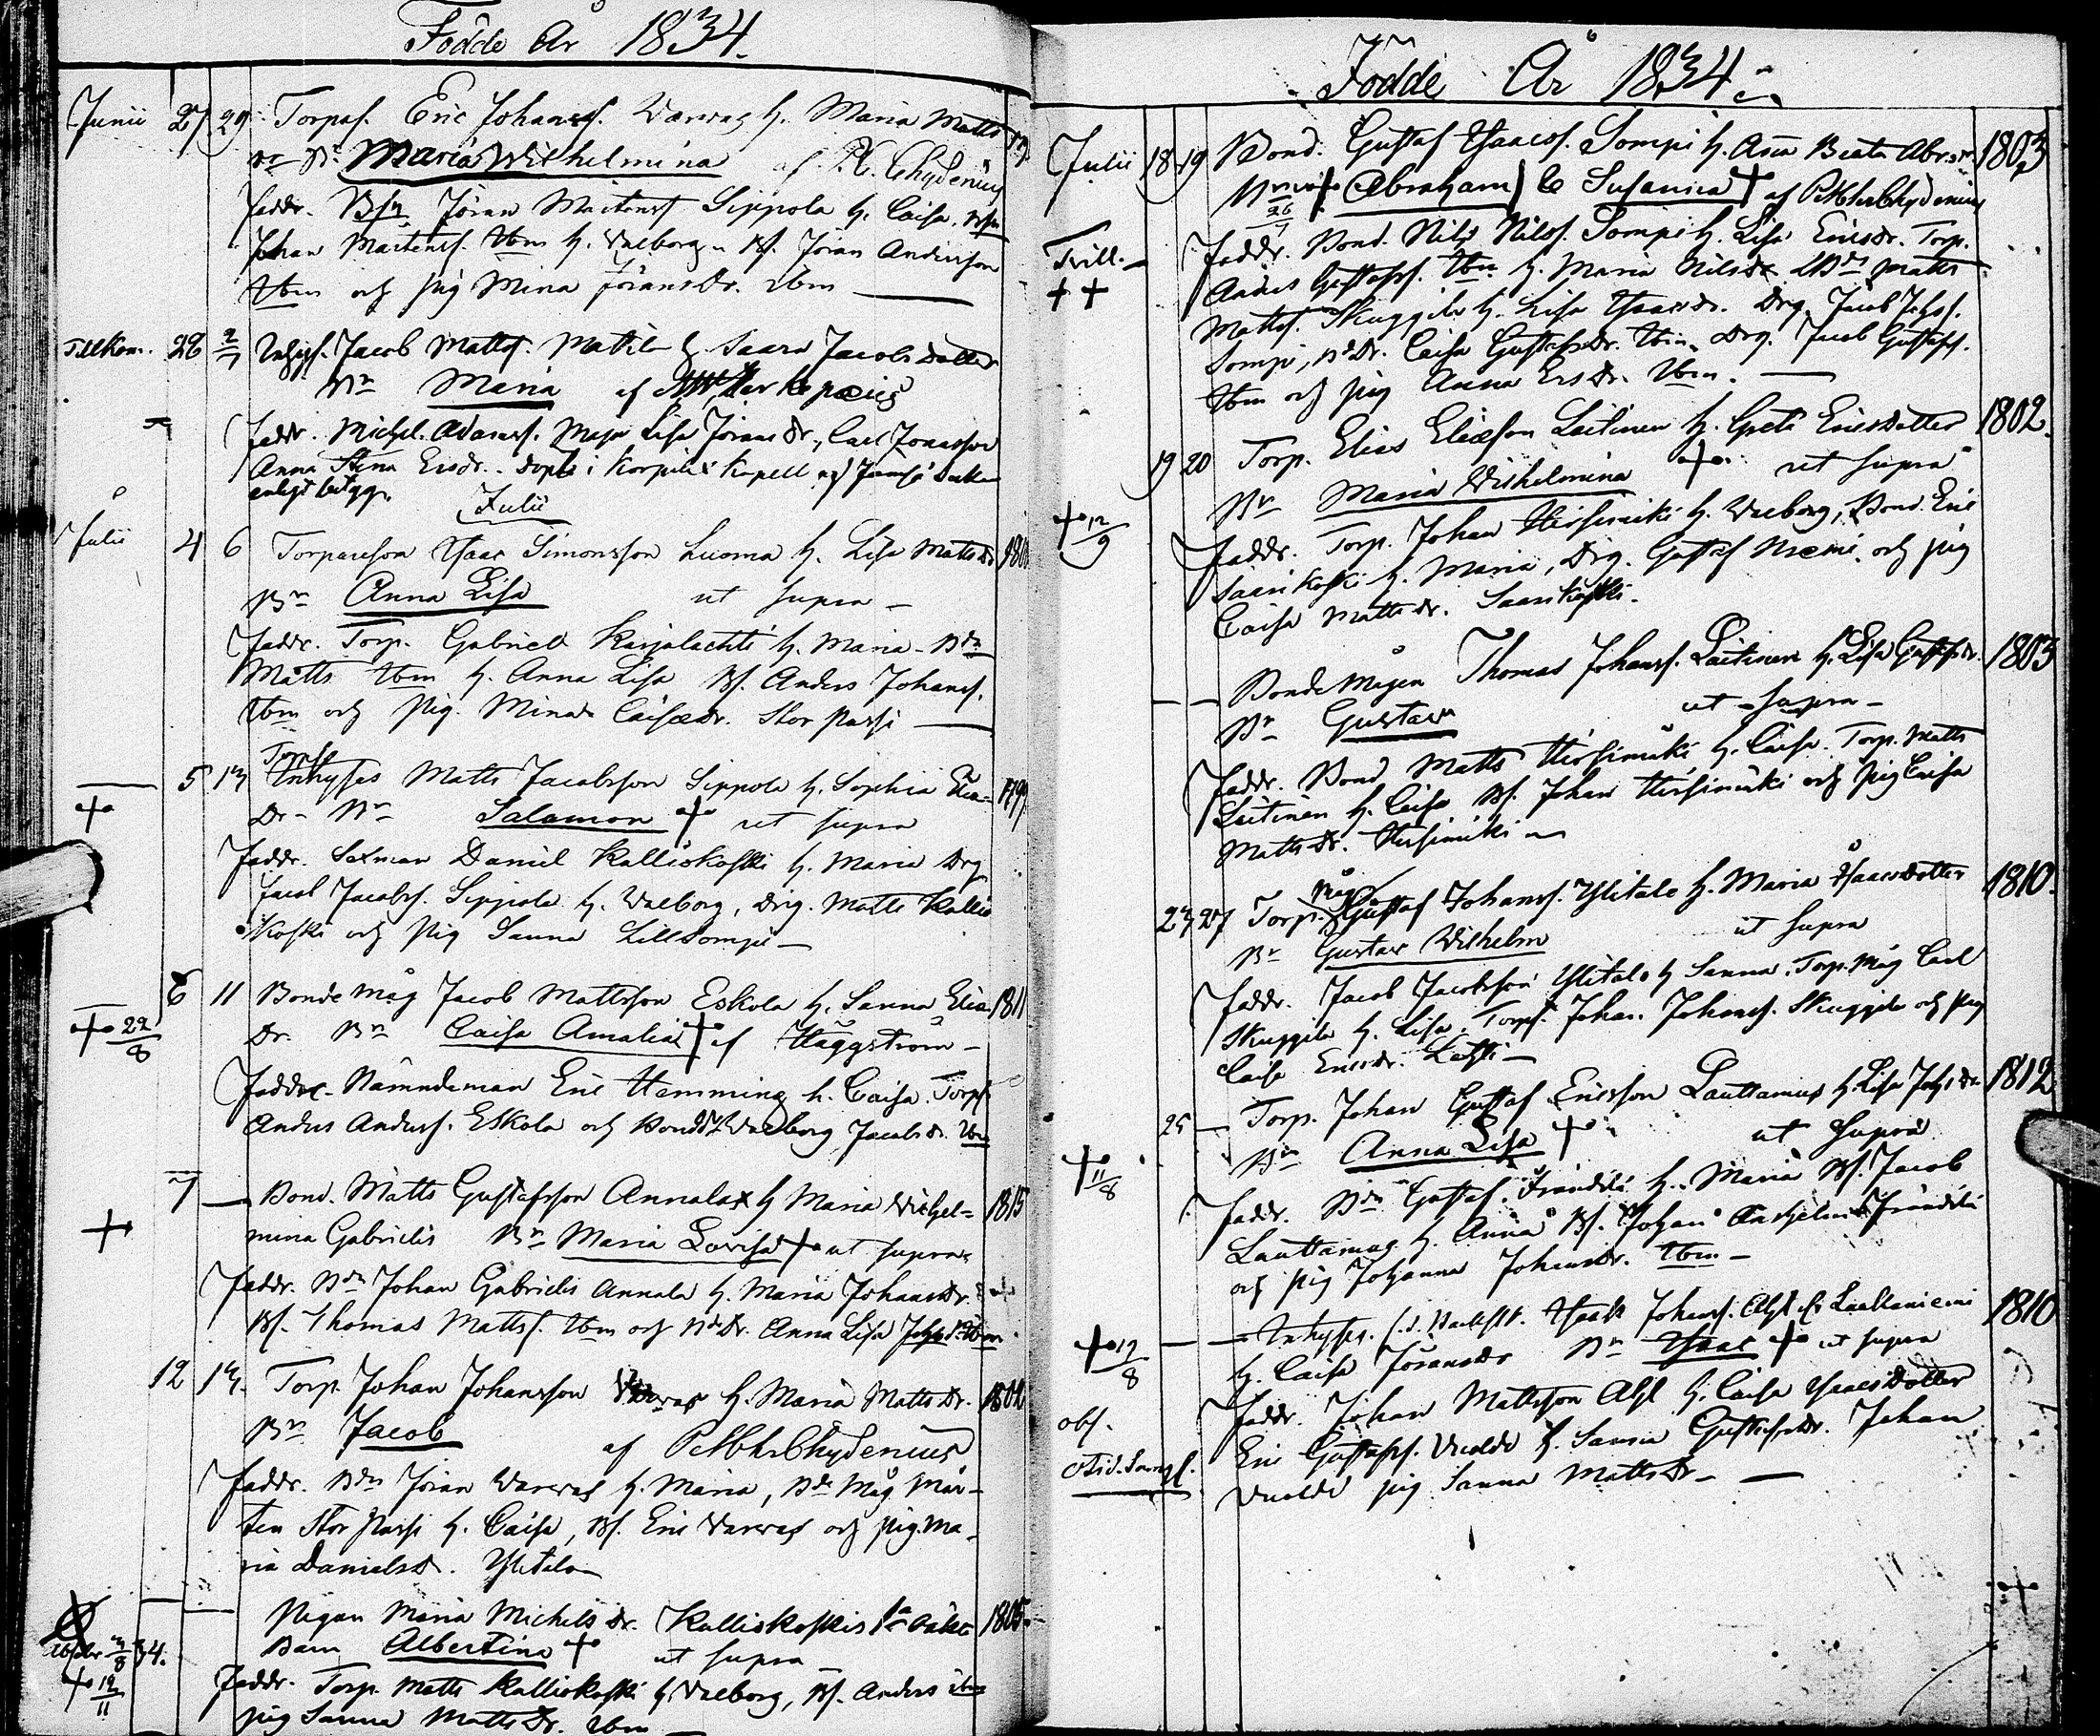 Födde År 1834.
Junii 27 29 Torpas. Eric Johanss. Warwas h. Maria Matts
Dr Bn Maria Wilhelmina af Chydenius
Faddr. Bdn Jöran Mårtenss Sippola h. Caisa,
Johan Mårtenss. Ibm h. Walborg, Bs. Jöran Andersson
Ibm och pig Mina Jöransdr. ibm
Tillkom. 28 2/7 Inhys. Jacob Matts. Mattila h. Saara Jacobsdotter
Bn Maria af
Faddr. Michel Adamss. Maja Lisa Jöransdr., Carl Jonasson
Anna Stina Ersdr. döpts i Korpilax Kapell af Jämsä Sockn
enligt betyg.
Julii
Julii 4 6 Torpareson Isaac Simonsson Luoma h. Lisa Mattsdr
Bn Anna Lisa ut supra
Faddr. Torp. Gabriel Karjalachti h. Maria Bdn
Matts Ibm h. Anna Lisa Bs. Anders Johanss.
Ibm och Pig. Mina Caisædr. Stor Passi
Torps
5 13 Inhyses Matts Jacobsson Sippola h. Sophia Elia= 1799
Dr. Bn Salamon + ut supra
Faddr. Soldat Daniel Kalliokoski h. Maria Drg
Jacob Jacobss. Sippola h. Walborg, Drg. Matts Kallio
koski och Pig Sanna Lillsompi
6 11 Bonde måg Jacob Mattsson Eskola h. Sanna Elia 1811
+ 22/8 Dr. Bn Caisa Amalia + af Häggström
Faddr. Nämndeman Eric Hemming h. Caisa. Torps.
Anders Anderss. Eskola och Bonddr Walborg Jacobsdr. Ibm
7 Bond. Matts Gustafsson Annala h. Maria Wilhel= 1815
+ mina Gabrielis Bn Maria Lovisa + ut supra
Faddr. Bdn Johan Gabrielis Annala h. Maria Johansdr.
Bs. Thomas Mattss. Ibm och BdDr. Anna Lisa Johsdr. Ibm
12 13. Torp. Johan Johansson Warwas h. Maria Mattsdr. 1802
Bn Jacob af Chydenius
Faddr. Bdn Jöran Warwas h. Maria, Bde Måg Mår-
ten Stor Passi h. Caisa, Bs. Eric Warwas och pig. Ma-
ria Danielsdr. Ylitalo
Pigan Maria Michelsdr. Kalliokoskis 1a oäkta 1805.
Barn Albertina + ut supra
Absolv. 3/8 34.
+ 12/11 Faddr. Torp. Matts Kalliokoski h. Walborg, Bs. Anders ibm
pig Sanna Mattsdr. Ibm
Födde År 1834.
Julii 18 19 Bond. Gustaf Isaacss. Sompi h. Anna Beata Abr.dr. 1803
+ Abraham & Susanna + af Chydenius
26/7
Tvill. Faddr. Bond. Nils Nilss. Sompi h. Lisa Ericsdr. Torp.
+ + Anders Gustafss. Ibm h. Maria Nilsdr Matts
Mattss. Skuggila h. Lisa Isaacsdr. Drg. Jacob Johss.
Sompi, BdDr. Caisa Gustafsdr. Ibm, Drg. Jacob Gustafss.
Ibm och pig Anna Ersdr. Ibm.
19 20 Torp. Elias Eliæson Laitinen h. Greta Ericsdotter 1802.
Bn Maria Wilhelmina + ut supra
+ 12/9 Faddr. Torp. Johan Hirsimäki h. Walborg, Bond. Eric
Saarikoski h. Maria, Drg. Gustaf Niemi och pig
Caisa Mattsdr. Saarikoski.
Bonde Mågen Thomas Johanss. Laitinen h. Lisa Gustafsdr. 1803
Bn Gustav ut supra
Faddr. Bond Matts Hirsimäki h. Caisa. Torp. Matts
Laitinen h. Caisa Bs. Johan Hirsimäki och pig Caisa
Mattsdr. Hirsimäki
måg
23 27 Torp. Gustaf Johanss. Ylitalo h. Maria Isaacsdotter 1810.
Bn Gustav Wilhelm ut supra
Faddr. Jacob Jacobsson Ylitalo h. Sanna. Torp. Måg Carl
Skuggila h. Lisa. Torps. Johan Johanss. Skuggila och pig
Caisa Ericsdr. Lahti
25 Torp. Johan Gustaf Ericsson Lauttamus h. Lisa Johsdr 1812
Bn Anna Lisa + ut supra
+ 11/8 Faddr. Bdn Gustaf Fräntilä h. Maria Bs. Jacob
Lauttamus h. Anna Bs. Johan Fräntilä
och pig Johanna Johansdr. Ibm
Inhyses. Isaak Johanss. 1810
+ 12/8 h. Caisa Jöransdr Bn Isaac + ut supra
obs. Faddr. Johan Mattsson h. Caisa Isaacsdotter
Eric Gustafss. h. Sanna Gustafsdr. Johan
pig Sanna Mattsdr